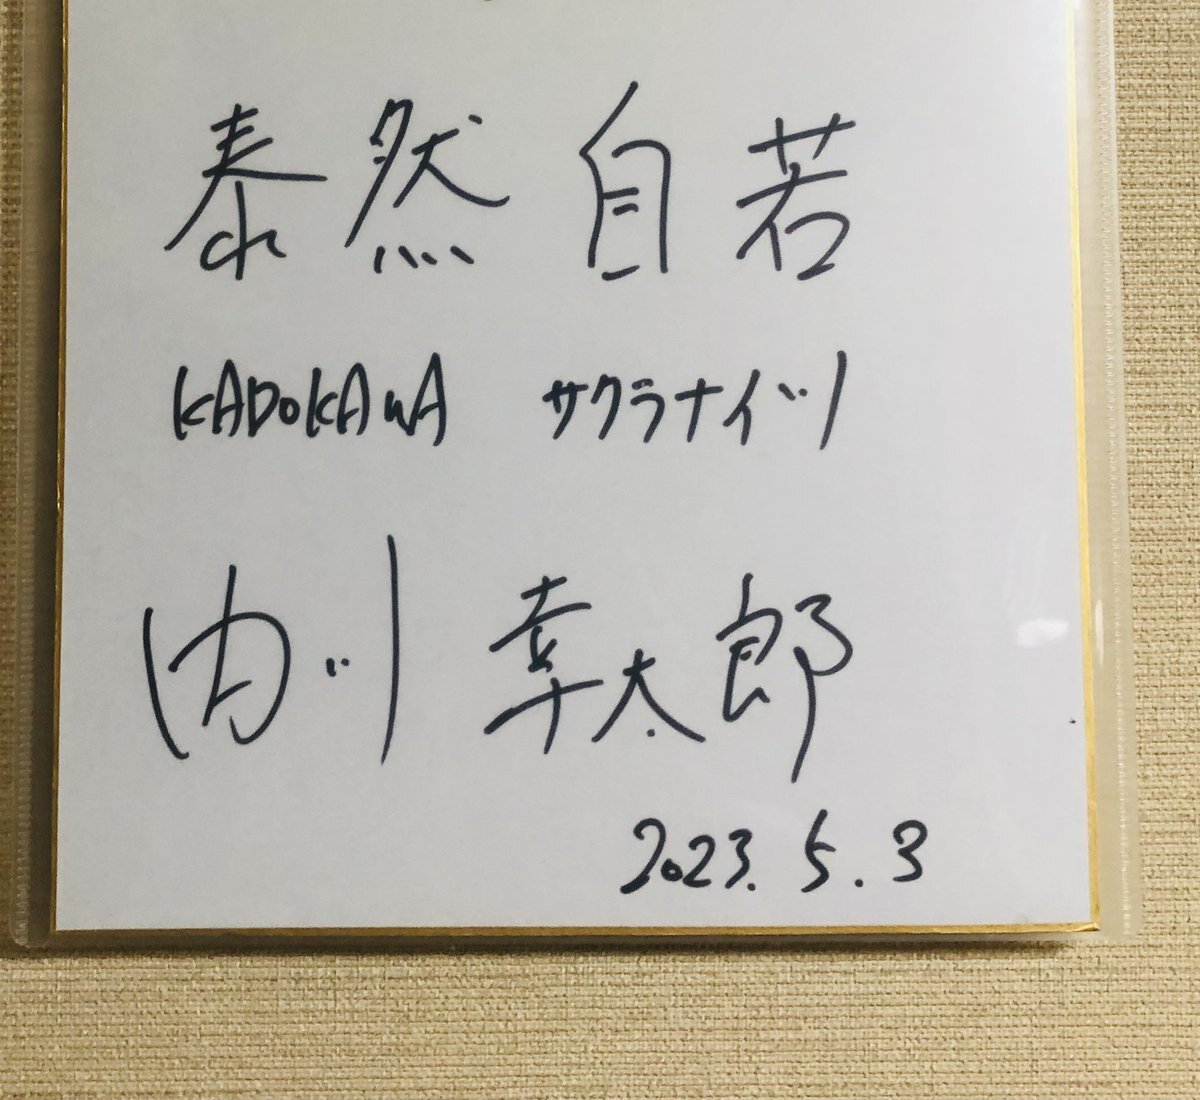 泰然自若
KADOKAWA サクラナイツ
内川幸太郎
2023.5.3